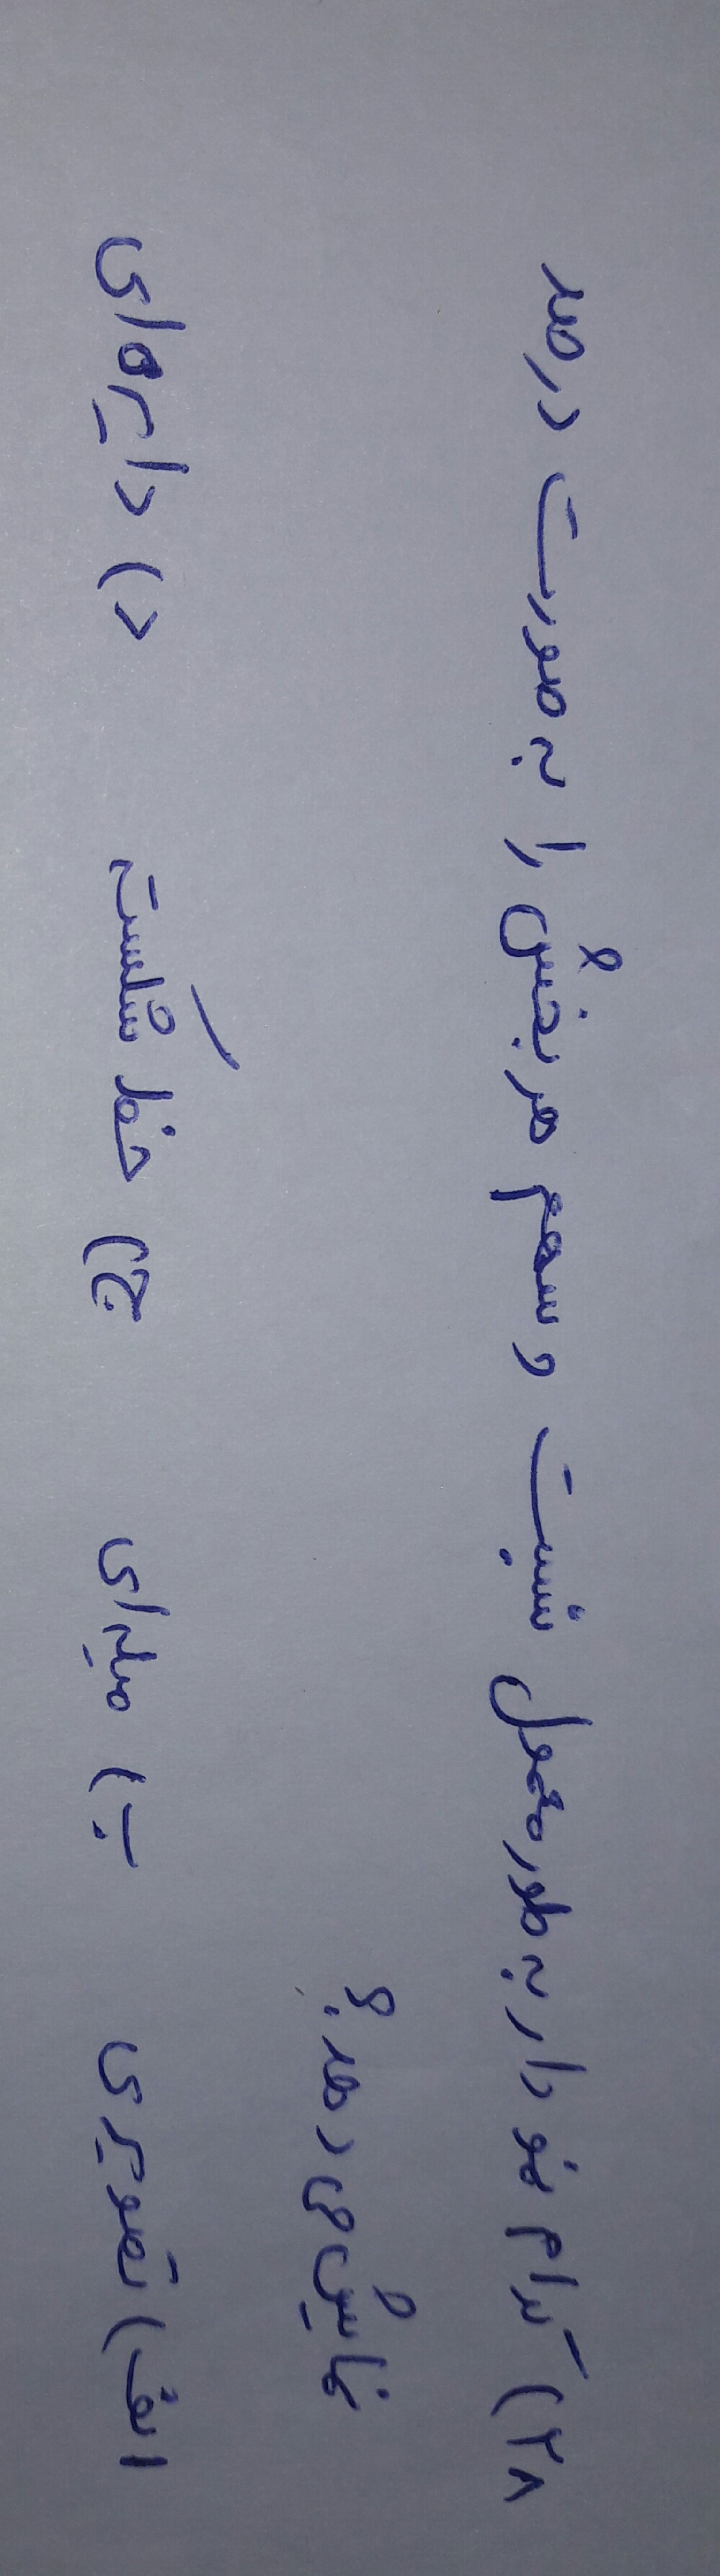 ۲۸) کدام نمودار به طور معمول نسبت و سهم هر بخش را به صورت درصد
نمایش می دهد؟
الف) تصویری ب) میله ای ج) خط شکسته د) دایره ای